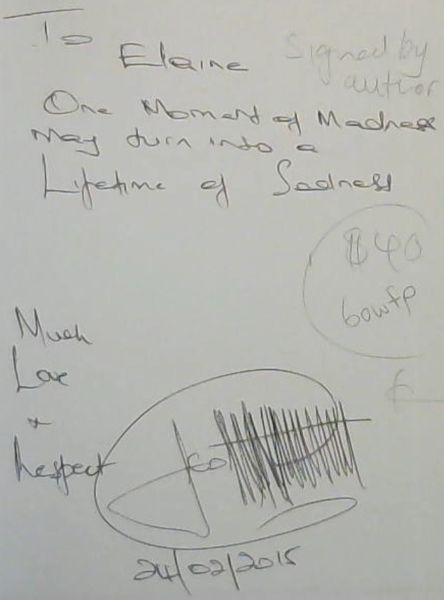 To
Elaine
Signed by
author
One Moment of Madness
May turn into a
Lifetime of Sadness
$40
Much
Love
+
Respect
24/02/2015